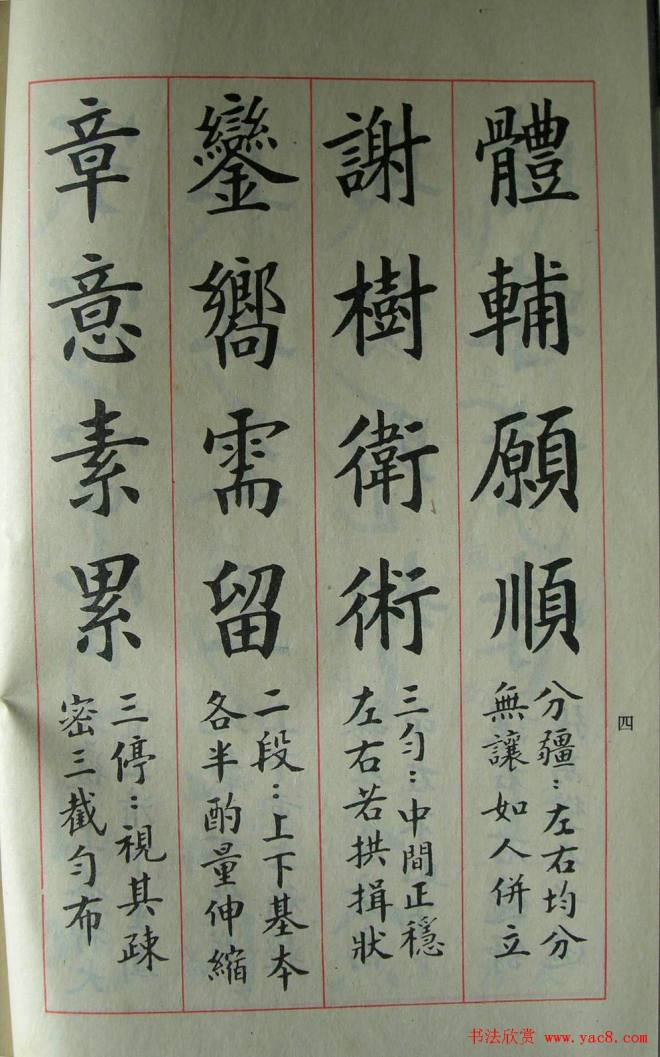 體輔願順
分疆：左右均分
無讓如人併立
謝樹衛術
三勻：中間正穩
左右若拱揖狀
鑾嚮需留
二段：上下基本
各半酌量伸縮
章意素累
三停：視其疎
密三截勻布
四
书法欣赏 www.yac8.com